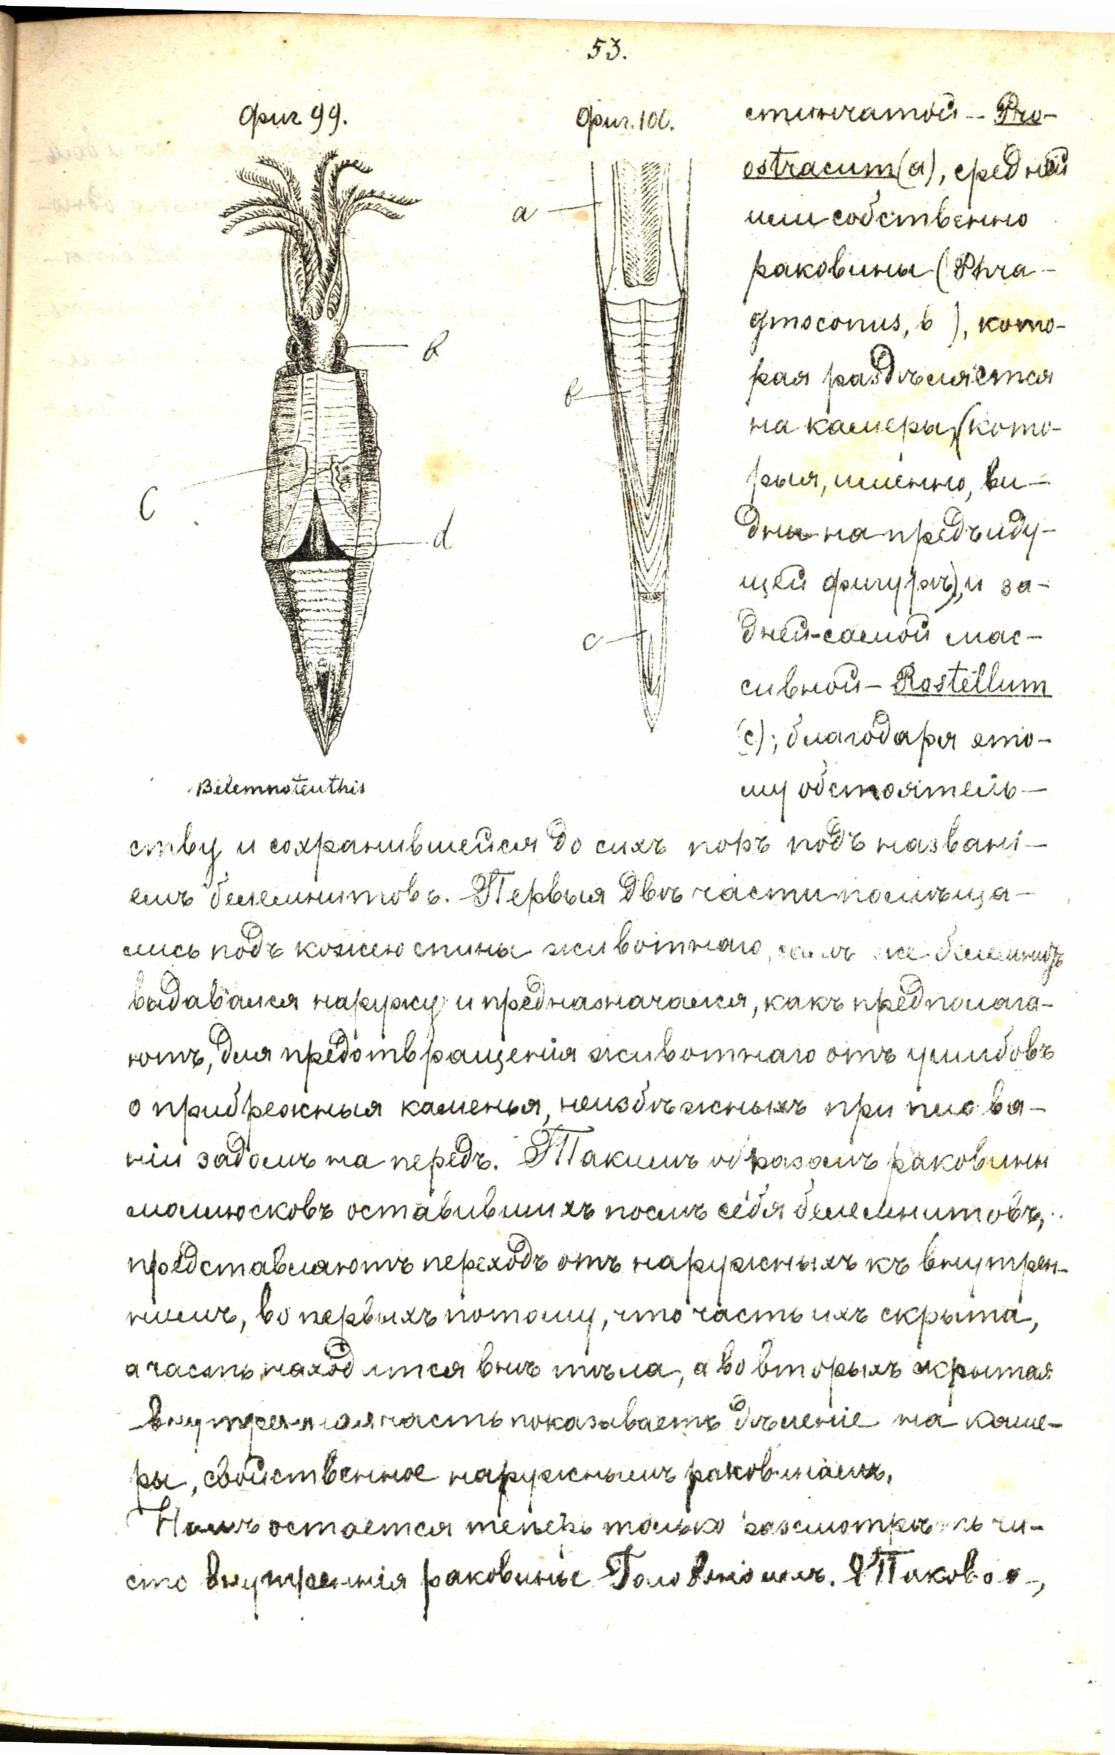 53.
Фиг 99.
Фиг. 100.
a
b
c
b
C
d
Belemnoteuthis
стинчатой — Pro-
ostracum (a), средней
или собственно
раковины (Phra-
gmoconus, b), кото-
рая раздѣляется
на камеры (кото-
рыя, именно, ви-
дны на предъиду-
щей фигурѣ), и за-
дней-самой мас-
сивной — Rostellum
(c); благодаря это-
му обстоятель-
ству и сохранившейся до сихъ поръ подъ названі-
емъ белемнитовъ. Первыя двѣ части помѣща-
лись подъ кожею спины животнаго, самъ же белемнитъ
выдавался наружу и предназначался, какъ предполага-
ютъ, для предотвращенія животнаго отъ ушибовъ
о прибрежныя каменья, неизбѣжныхъ при плава-
ніи задомъ на передъ. Такимъ образомъ раковины
молюсковъ оставившихъ послѣ себя белемнитовъ,
представляютъ переходъ отъ наружныхъ къ внутрен-
нимъ, во первыхъ потому, что часть ихъ скрыта,
а часть находится внѣ тѣла, а во вторыхъ скрытая
внутренняя часть показываетъ дѣленіе на каме-
ры, свойственное наружнымъ раковинамъ.
Намъ остается теперь только разсмотрѣть чи-
сто внутреннія раковины Головоногихъ.